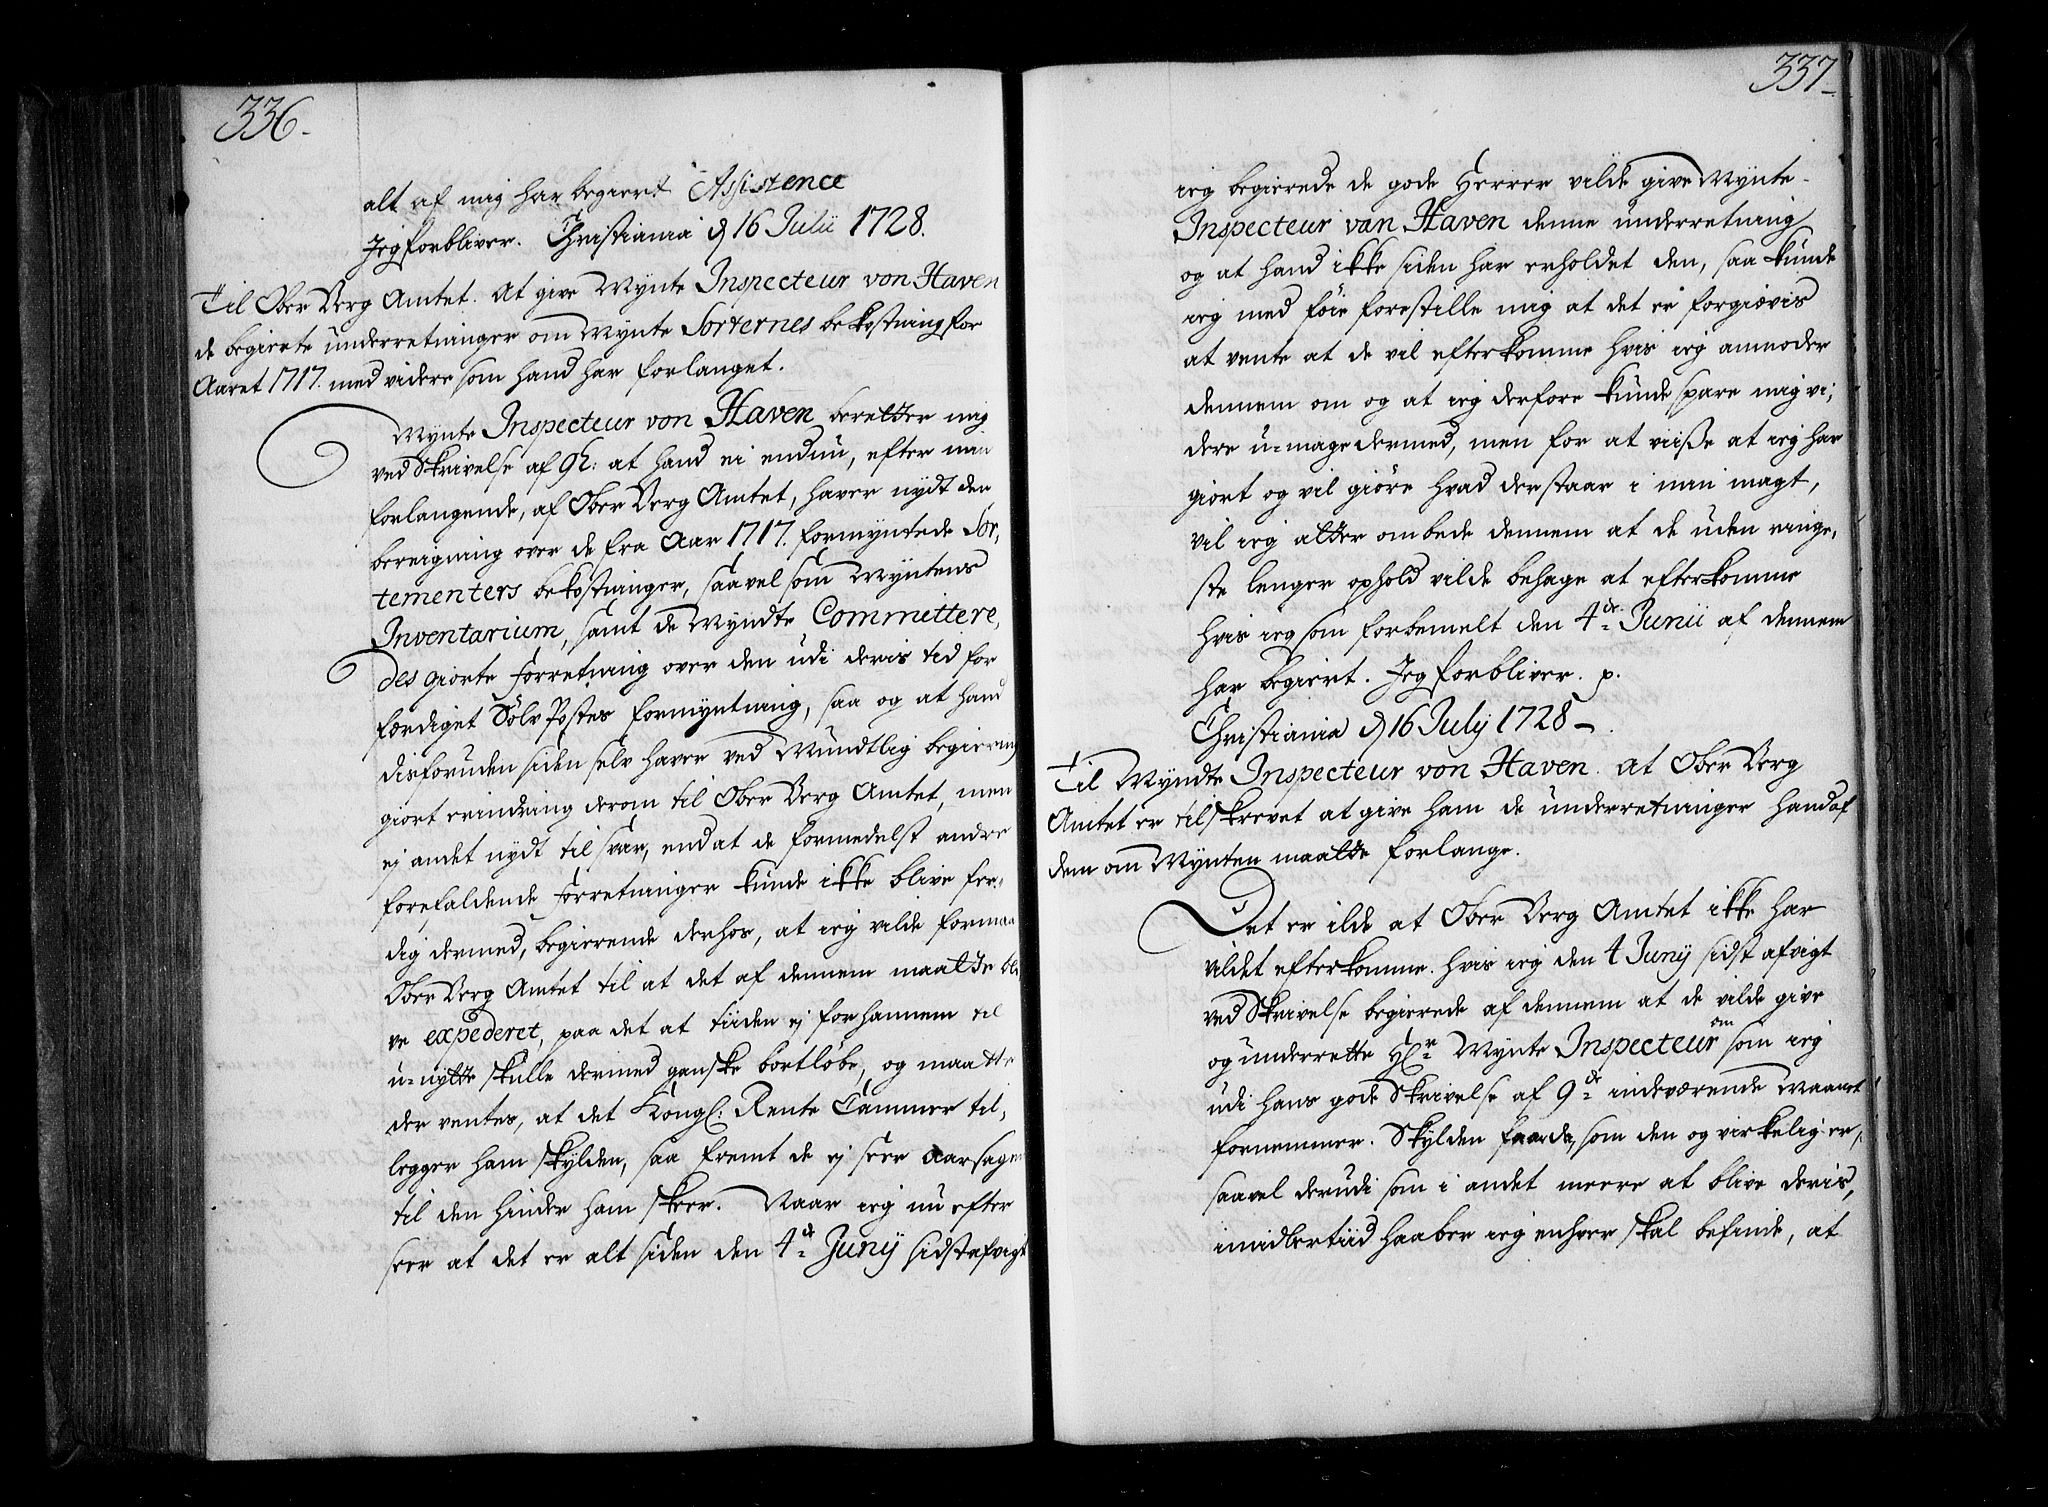 336.
alt af mig har begiert Assistence
Jeg forbliver. Christiania d 16 Julii 1728.
Til Ober Berg Amtet. At give Mynte Inspecteur von Haven
de begierte underretninger om Mynte Sorternes bekostning for
Aaret 1717. med videre som hand har forlanget.
Mynte Inspecteur von Haven beretter mig
ved Skrivelse af 9h: at hand ei endnu, efter min
forlangende, af Ober Berg Amtet, haver nydt den
bereigning over de fra Aar 1717. formyntede Sor,
tementers bekostninger, saavel som Myntens
Inventarium, samt de Myndte Committere,
des giorte Forretning over den udi deris tid for
færdiget Sølv Postes formyntning, saa og at hand
disforuden siden selv haver ved Mundtlig begiering
giort erindring derom til Ober Berg Amtet, men
ej andet nydt til svar, end at de formedelst andre
forefaldende Forretninger kunde ikke blive fær,
dig dermed, begierende derhos, at ieg vilde formaa
Ober Berg Amtet til at det af dennem maatte bli
ve expederet, paa det at tiiden ej for hannem til
u-nytte skulle dermed ganske bortløbe, og maatte
der ventes, at det Kongl: Rente Cammer til,
legger ham skylden, saa fremt de ej seer Aarsagen
til den hinder ham skeer. Naar ieg nu efter
seer at det er alt siden den 4de Junij sidstafvigt
337
ieg begierede de gode Herrer vilde give Mynte-
Inspecteur van Haven denne underretning
og at hand ikke siden har erholdet den, saa kunde
ieg med føie forestille mig at det er forgiævis
at vente at de vil efterkomme hvis ieg anmoder
dennem om og at ieg derfore kunde spare mig vi,
dere u-mage dermed, men for at viise at ieg har
giort og vil giøre hvad der staar i min magt,
vil ieg atter ombede dennem at de uden ringe,
ste lenger ophold vilde behage at efterkomme
hvis ieg som forbemelt den 4de Junii af dennem
har begiert. Jeg forbliver. p.
Christiania d 16 July 1728
Til Myndte Inspecteur von Haven. At Ober Berg
Amtet er tilskrevet at give ham de underretninger hand af
dem om Mynten maatte forlange.
Det er ilde at Ober Berg Amtet ikke har
vildet efterkomme. hvis ieg den 4 Junij sidst afvigt
ved Skrivelse begierede af dennem at de vilde give
og underrette Hr Mynte Inspecteur om som ieg
udi hans gode Skrivelse af 9de indeværende Maanet
fornemmer. Skylden som den og virkelig er,
saavel derudi som i andet meere at blive deris,
imidlertiid haaber ieg enhver skal befinde, at